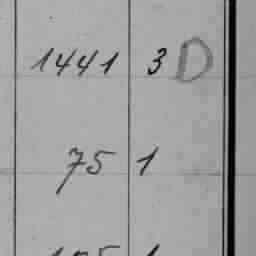 1441 3 D
75 1